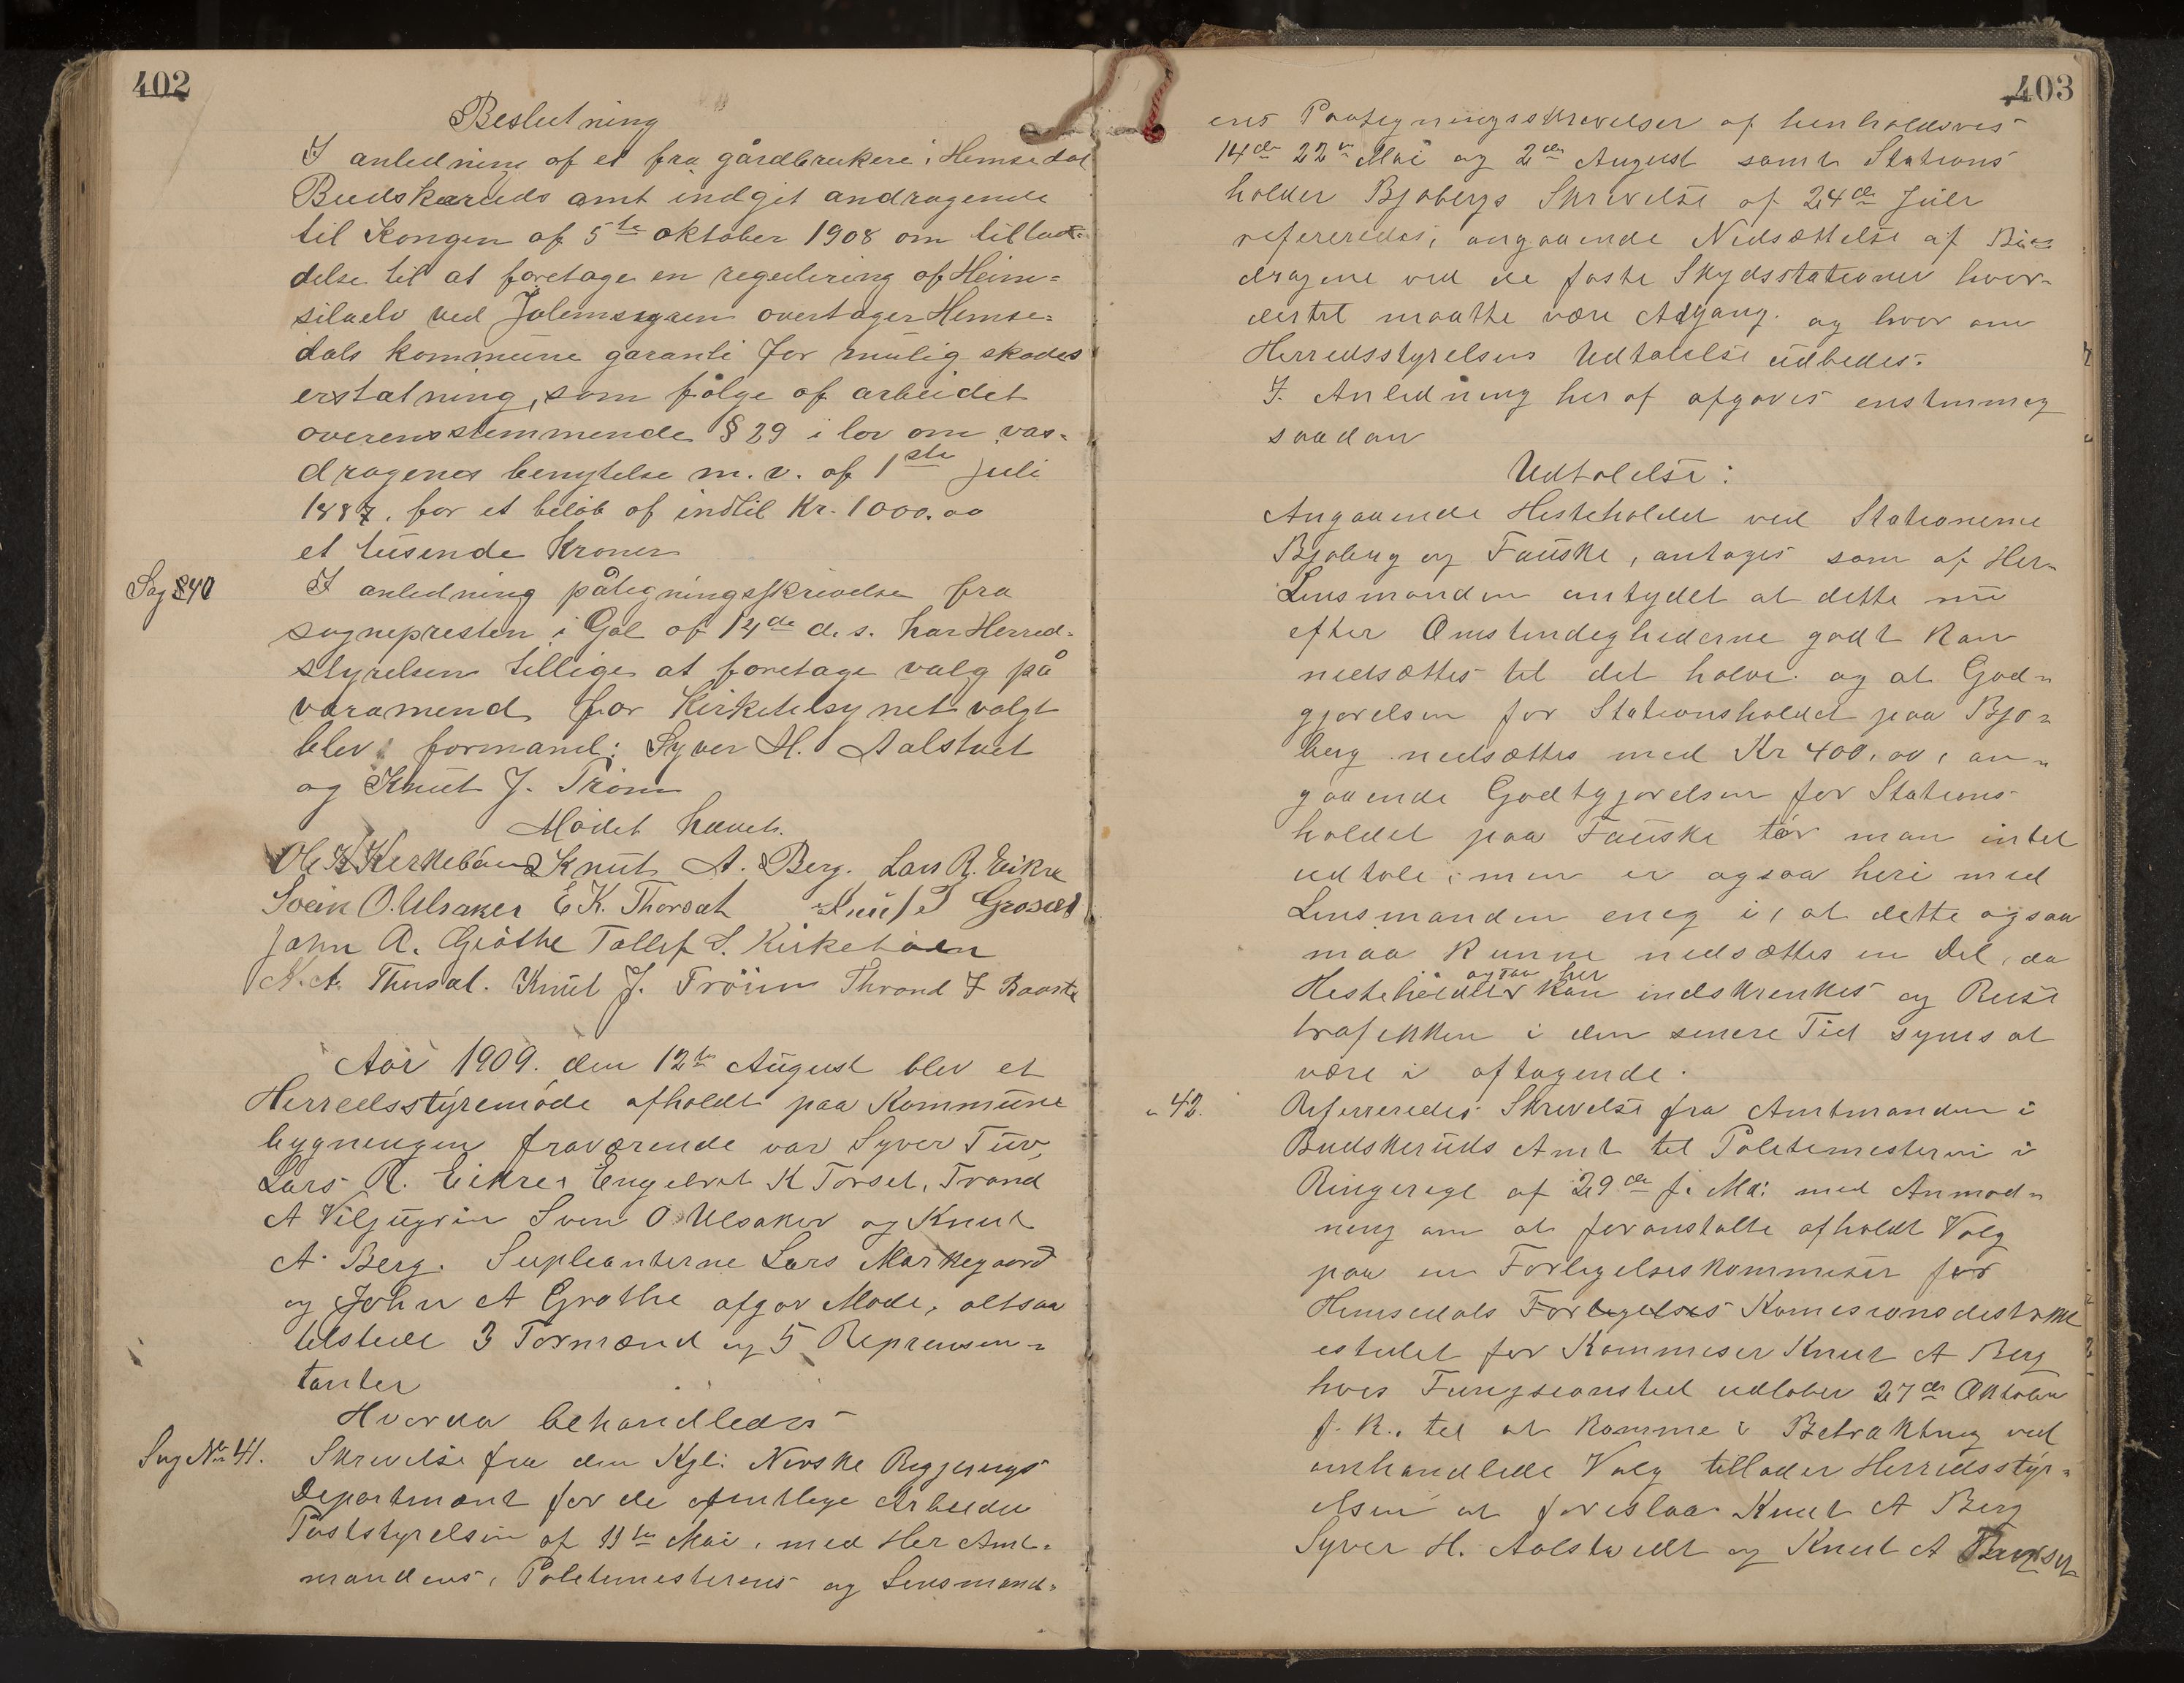 402
Beslutning
I anledning af et fra gårdbrukere i Hemsedal
Budskeruds amt indgit andragende
til Kongen af 5te oktober 1908 om tillad-
delse til at foretage en regulering af Heim=
silaelv ved overtager Hemse=
dals kommune garanti for mulig skades
erstatning, som følge af arbeidet
overensstemmende § 29 i lov om vas=
dragenes benytelse m.v. af 1ste juli
1887, for et beløb af indtil Kr. 1000.00
et tusende Kroner
Sag 40
I anledning påtegningsskrivelse fra
sognepresten i Gol af 14de d.s. har Herred=
styrelsen tillige at foretage valg på
varamend for Kirketilsynet valgt
blev formand: Syver H. Aalstvet
og Knut J. Trøim
Mødet hævet.
Ole K Kirkebøen Knut A. Berg. Lars R. Eikre
Svein O. Ulsaker E K. Thorset Knut T Grøset
John A. Grøthe Tollef S. Kirkebøen
K. A. Knut J. Trøim Thrond T
Aar 1909. den 12te August blev et
Herredsstyremøde afholdt paa Kommune
bygningen fraværende var Syver Tuv,
Lars R. Eikre, Engebret K Torset, Trond
A Viljugrein Sven O Ulsaker og Knut
A Berg. Supleanterne Lars Markegaard
og John A Grøthe afgav Møde, altsaa
tilstede 3 Formænd og 5 Reprensen=
tanter
Hvorda behandledes
Sag No 41.
Skrivelse fra den Kgl: Norske Regjerings
Departmant for de ofentlige Arbeider
Poststyrelsen af 11te Mai, med Her Amt=
mandens, Politimesterens og Lensmand=
403
ens Paategningsskrivelser af henholdsvis
14de 22de Mai og 2den August samt Stations
holder Bjøbergs Skrivelse af 24de Juli
refereredes, angaaende Nedsættelse af Bi=
dragene ved de faste Skydsstationer hvor=
dertil maatte være Adgang. og hvor om
Herredsstyrelsens Udtalelse udbedes.
I Anledning her af afgaves enstemmig
saadan
Udtalelse:
Angaaende Hesteholdet ved Stationerne
Bjøberg og Fauske, antages som af Her=
Lensmanden antydet at dette nu
efter Omstendighederne godt kan
nedsættes til det halve. og at God=
gjørelsen for Stationsholdet paa Bjø=
berg nedsættes med Kr 400.00, an=
gaaende Godtgjørelsen for Stations
holdet paa Fauske tør man intet
udtale; men er ogsaa heri med
Lensmanden enig i, at dette ogsaa
maa kunne nedsættes en Del, da
ogsaa her
Hesteholdet kan indskrenkes og Reise
trafikken i den senere Tid synes at
være i aftagende.
" 42.
Referreredes Skrivelse fra Amtmanden i
Budskeruds Amt til Politimesteren i
Ringerige af 29de f. Mai med Anmod=
ning om at foranstalte afholdt Valg
paa en Forligelseskommisær for
Hemsedals Forligelses Komisionsdistrikt
estedet for Kommisær Knut A Berg
hvis Fungsionstid udløber 27de Oktober
f. K., til at komme i Betraktning ved
omhandlede Valg tillader Herredsstyr=
elsen at foreslaa Knut A Berg
Syver H. Aalstvedt og Knut A